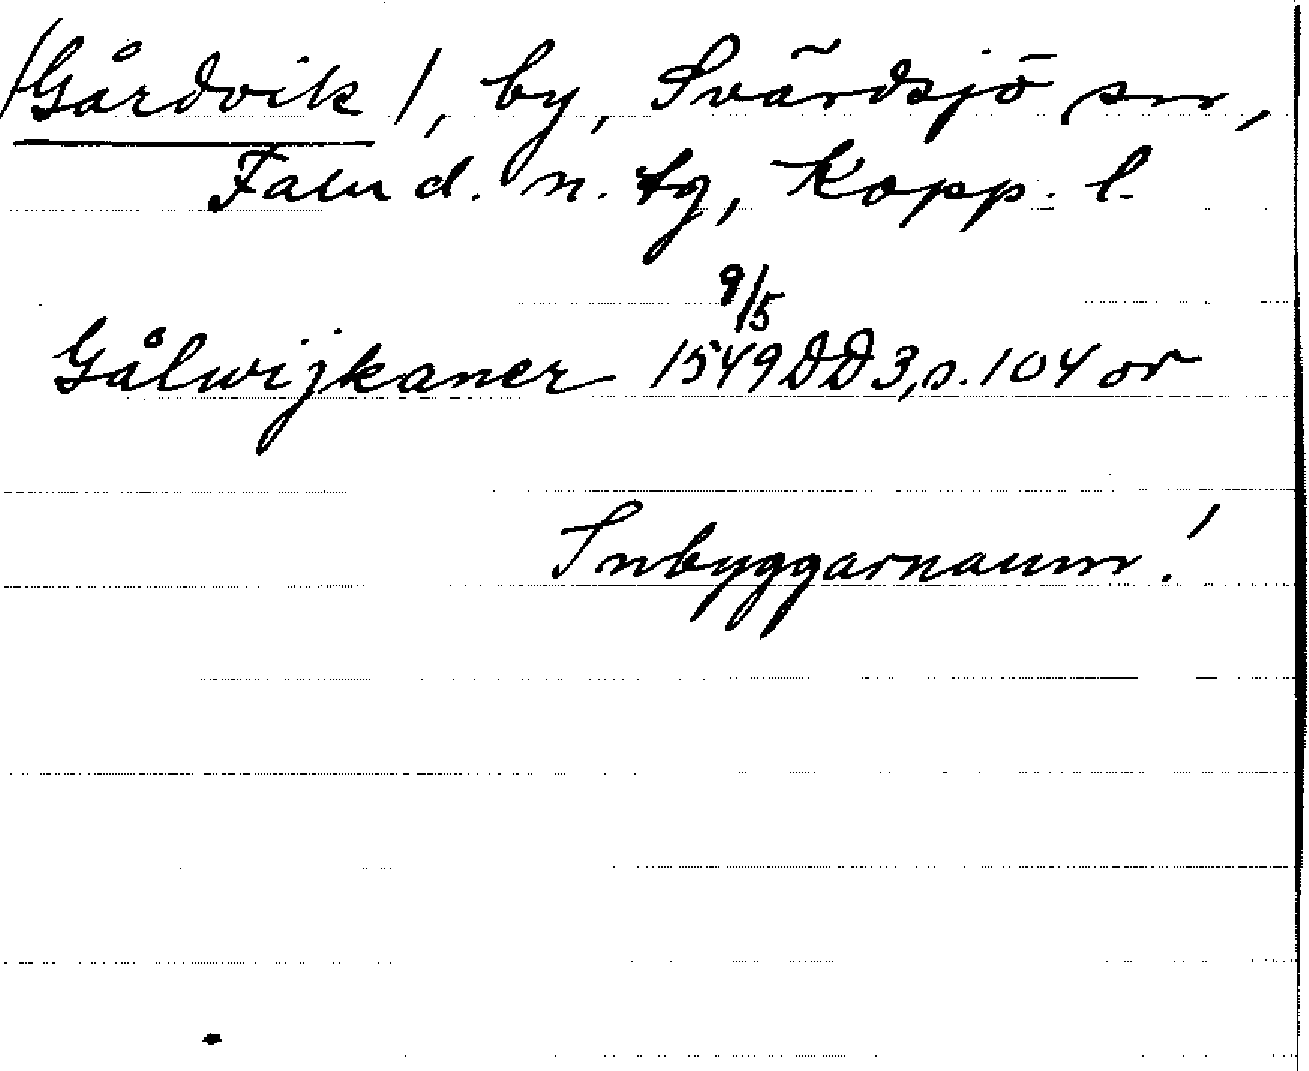 /Gårdvik/, by, Svärdsjö sn,
Falu d. n. tg, Kopp. l.
9/5
Gålwijkaner 1549 DD 3, s. 104 or
Inbyggarnamn!